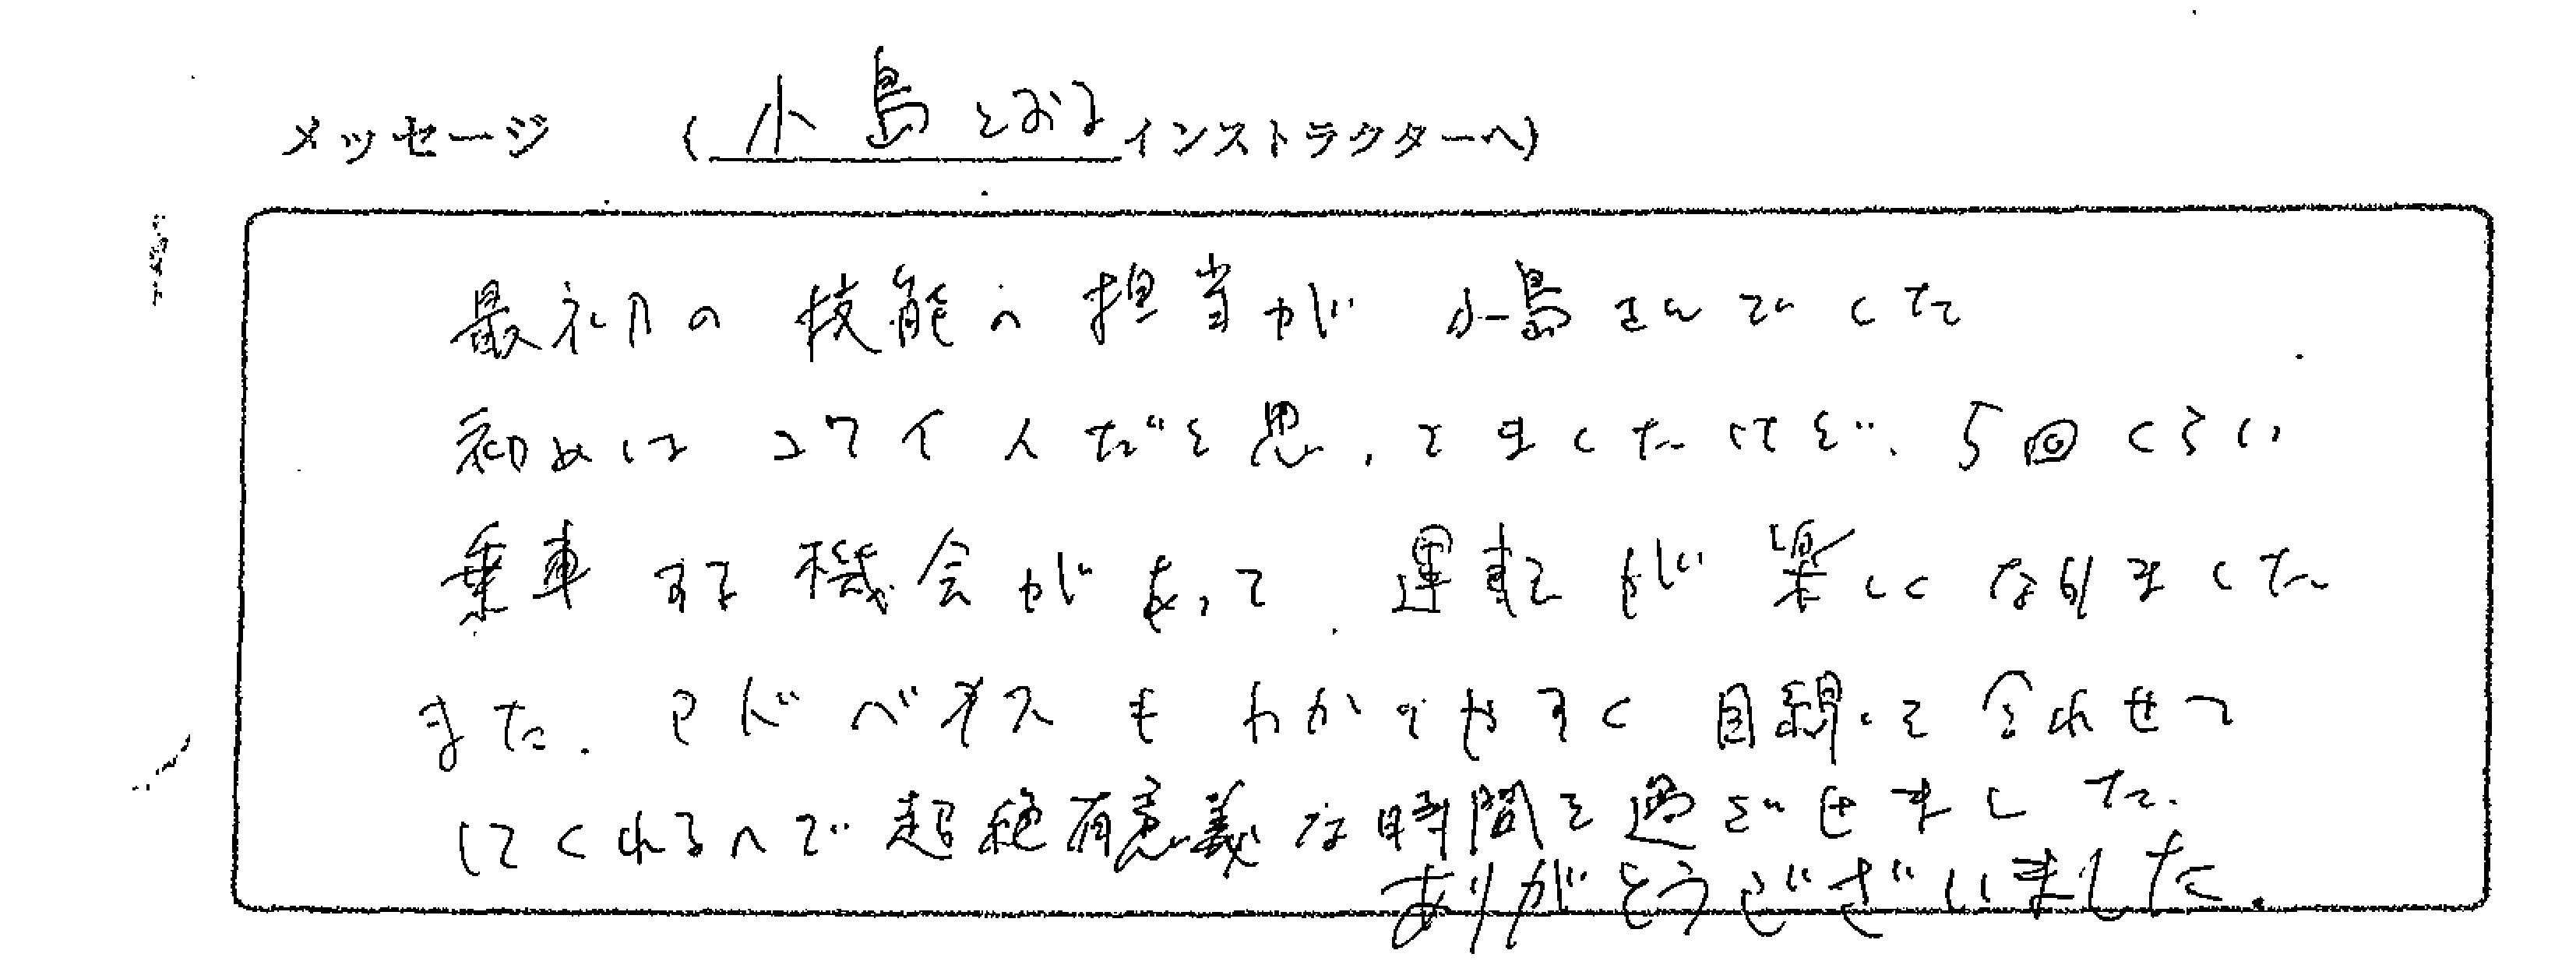 メッセージ (小島とおるインストラクターへ)
最初の技能の担当が 小島さんでした
初めはコワイ人だと思ってましたけど、5回くらい
乗車する機会があって、運転が楽しくなりました
また、アドバイスもわかりやすく目線を合わせて
してくれるので超絶有意義な時間を過ごせました。
ありがとうございました。